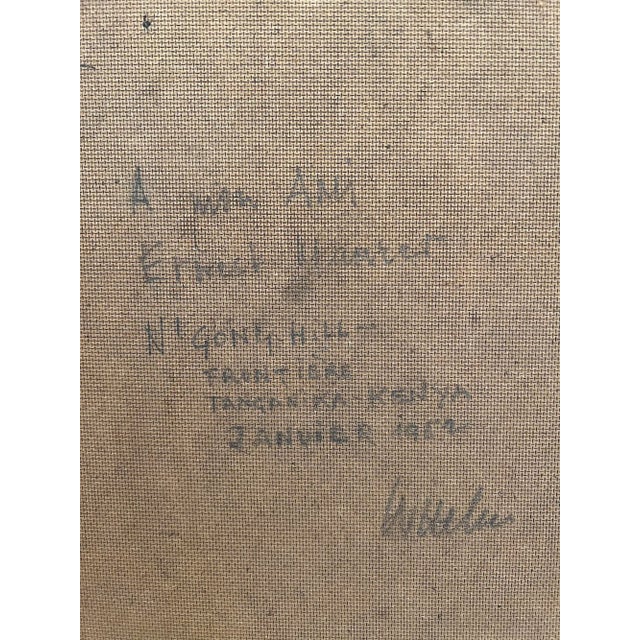 A mon AMi
Ernest
N'GONG HILL
FRONTIERE
TANGANIKA-KENYA
JANVIER 1952